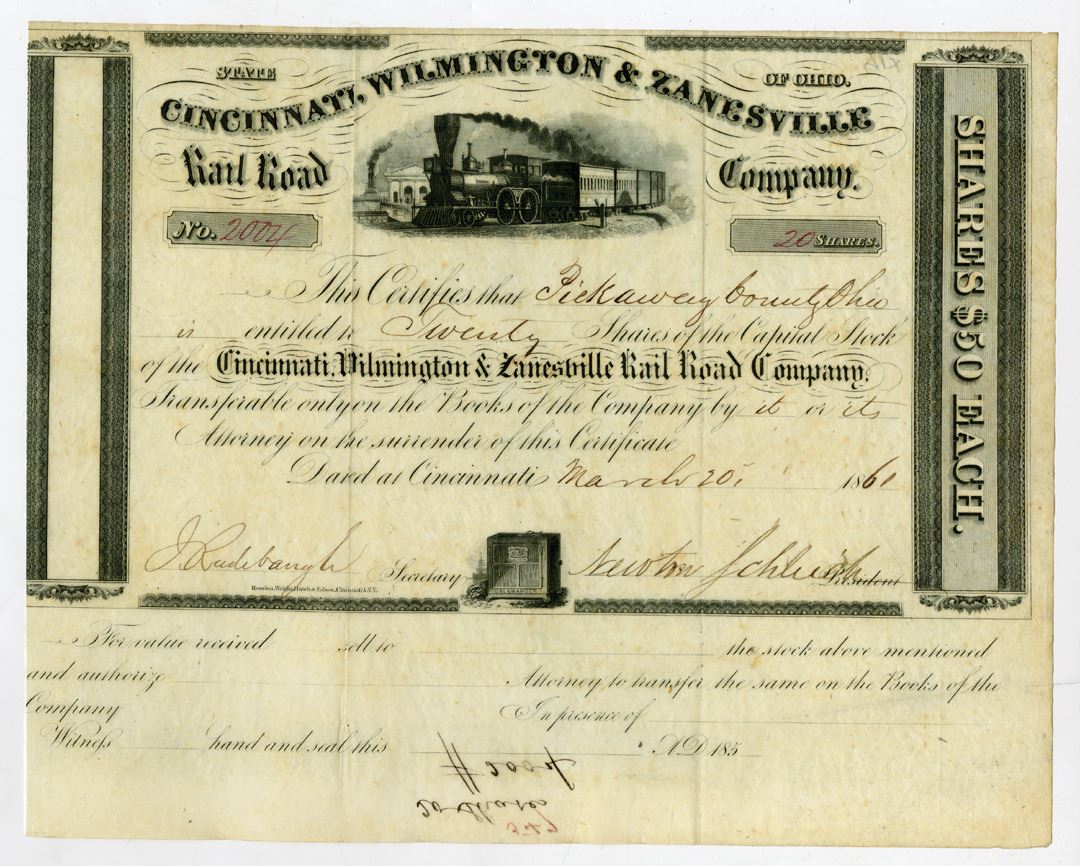 STATE OF OHIO.
CINCINNATI, WILMINGTON & ZANESVILLE
Rail Road Company.
No. 2004
20 SHARES.
This Certifies that Pickaway County Ohio
is entitled to Twenty Shares of the Capital Stock
of the Cincinnati, Wilmington & Zanesville Rail Road Company.
Transferable only on the Books of the Company by it or its
Attorney on the surrender of this Certificate
Dated at Cincinnati March 20, 1861
J Radebaugh Secretary
Newton Schleich President
Rawdon, Wright, Hatch & Edson, Cincinnati & N.Y.
SALAMANDER
SHARES $50 EACH.
For value received sell to the stock above mentioned
and authorize Attorney to transfer the same on the Books of the
Company In presence of
Witness hand and seal this A.D. 185
# 2004
20 Shares